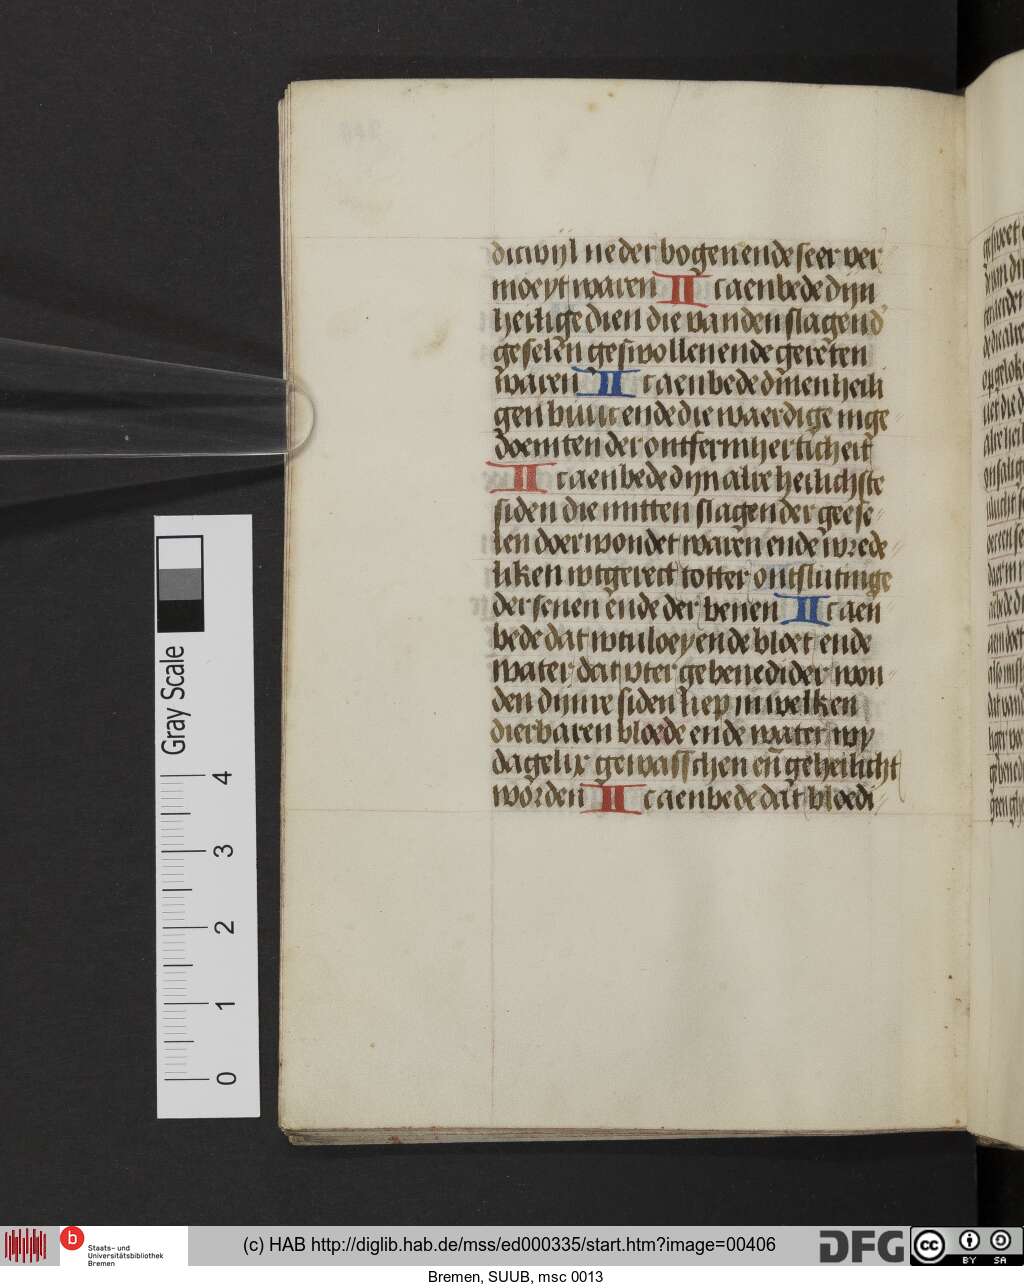 dicwijl neder bogen ende seer ver
moeyt waren Ic aenbede dijn
heilige dien die vanden slagend'
geselen geswollen ende gereten
waren Ic aenbede dinen heili
gen buuc ende die waerdige inge
doemten der ontfermherticheit
Ic aenbede dijn alre heilichste
siden die mitten slagen der geese
len doerwondet waren ende wrede
liken wtgerect totter ontslutinge
der senen ende der benen Ic aen
bede dat wtuloeyende bloet ende
water dat vter gebenedider won
den dijnre siden liep in welken
dierbaren bloede ende water wy
dagelix gewasschen en̄ geheilicht
worden Ic aenbede dat bloedi
Gray Scale
4
3
2
1
0
b
Staats- und
Universitätsbibliothek
Bremen
(c) HAB http://diglib.hab.de/mss/ed000335/start.htm?image=00406
DFG
cc
BY SA
Bremen, SUUB, msc 0013